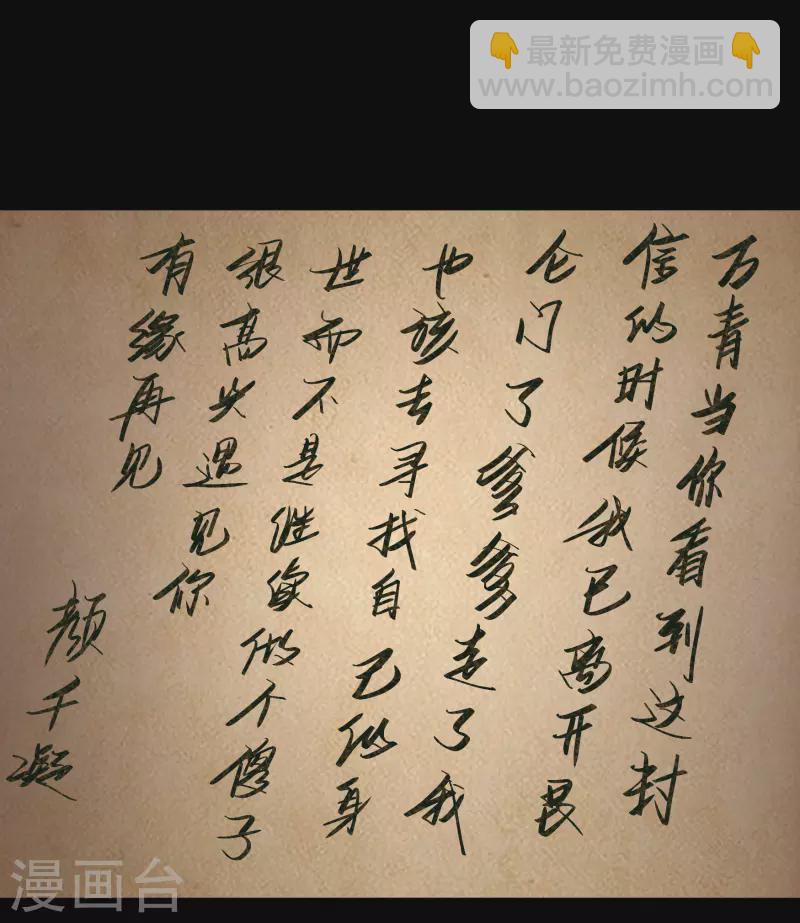 👇最新免费漫画👇
www.baozimh.com
万青当你看到这封
信的时候我已离开畏
仑门了爹爹走了我
也该去寻找自己的身
世而不是继续做个傻子
很高兴遇见你
有缘再见
颜千凝
漫画台